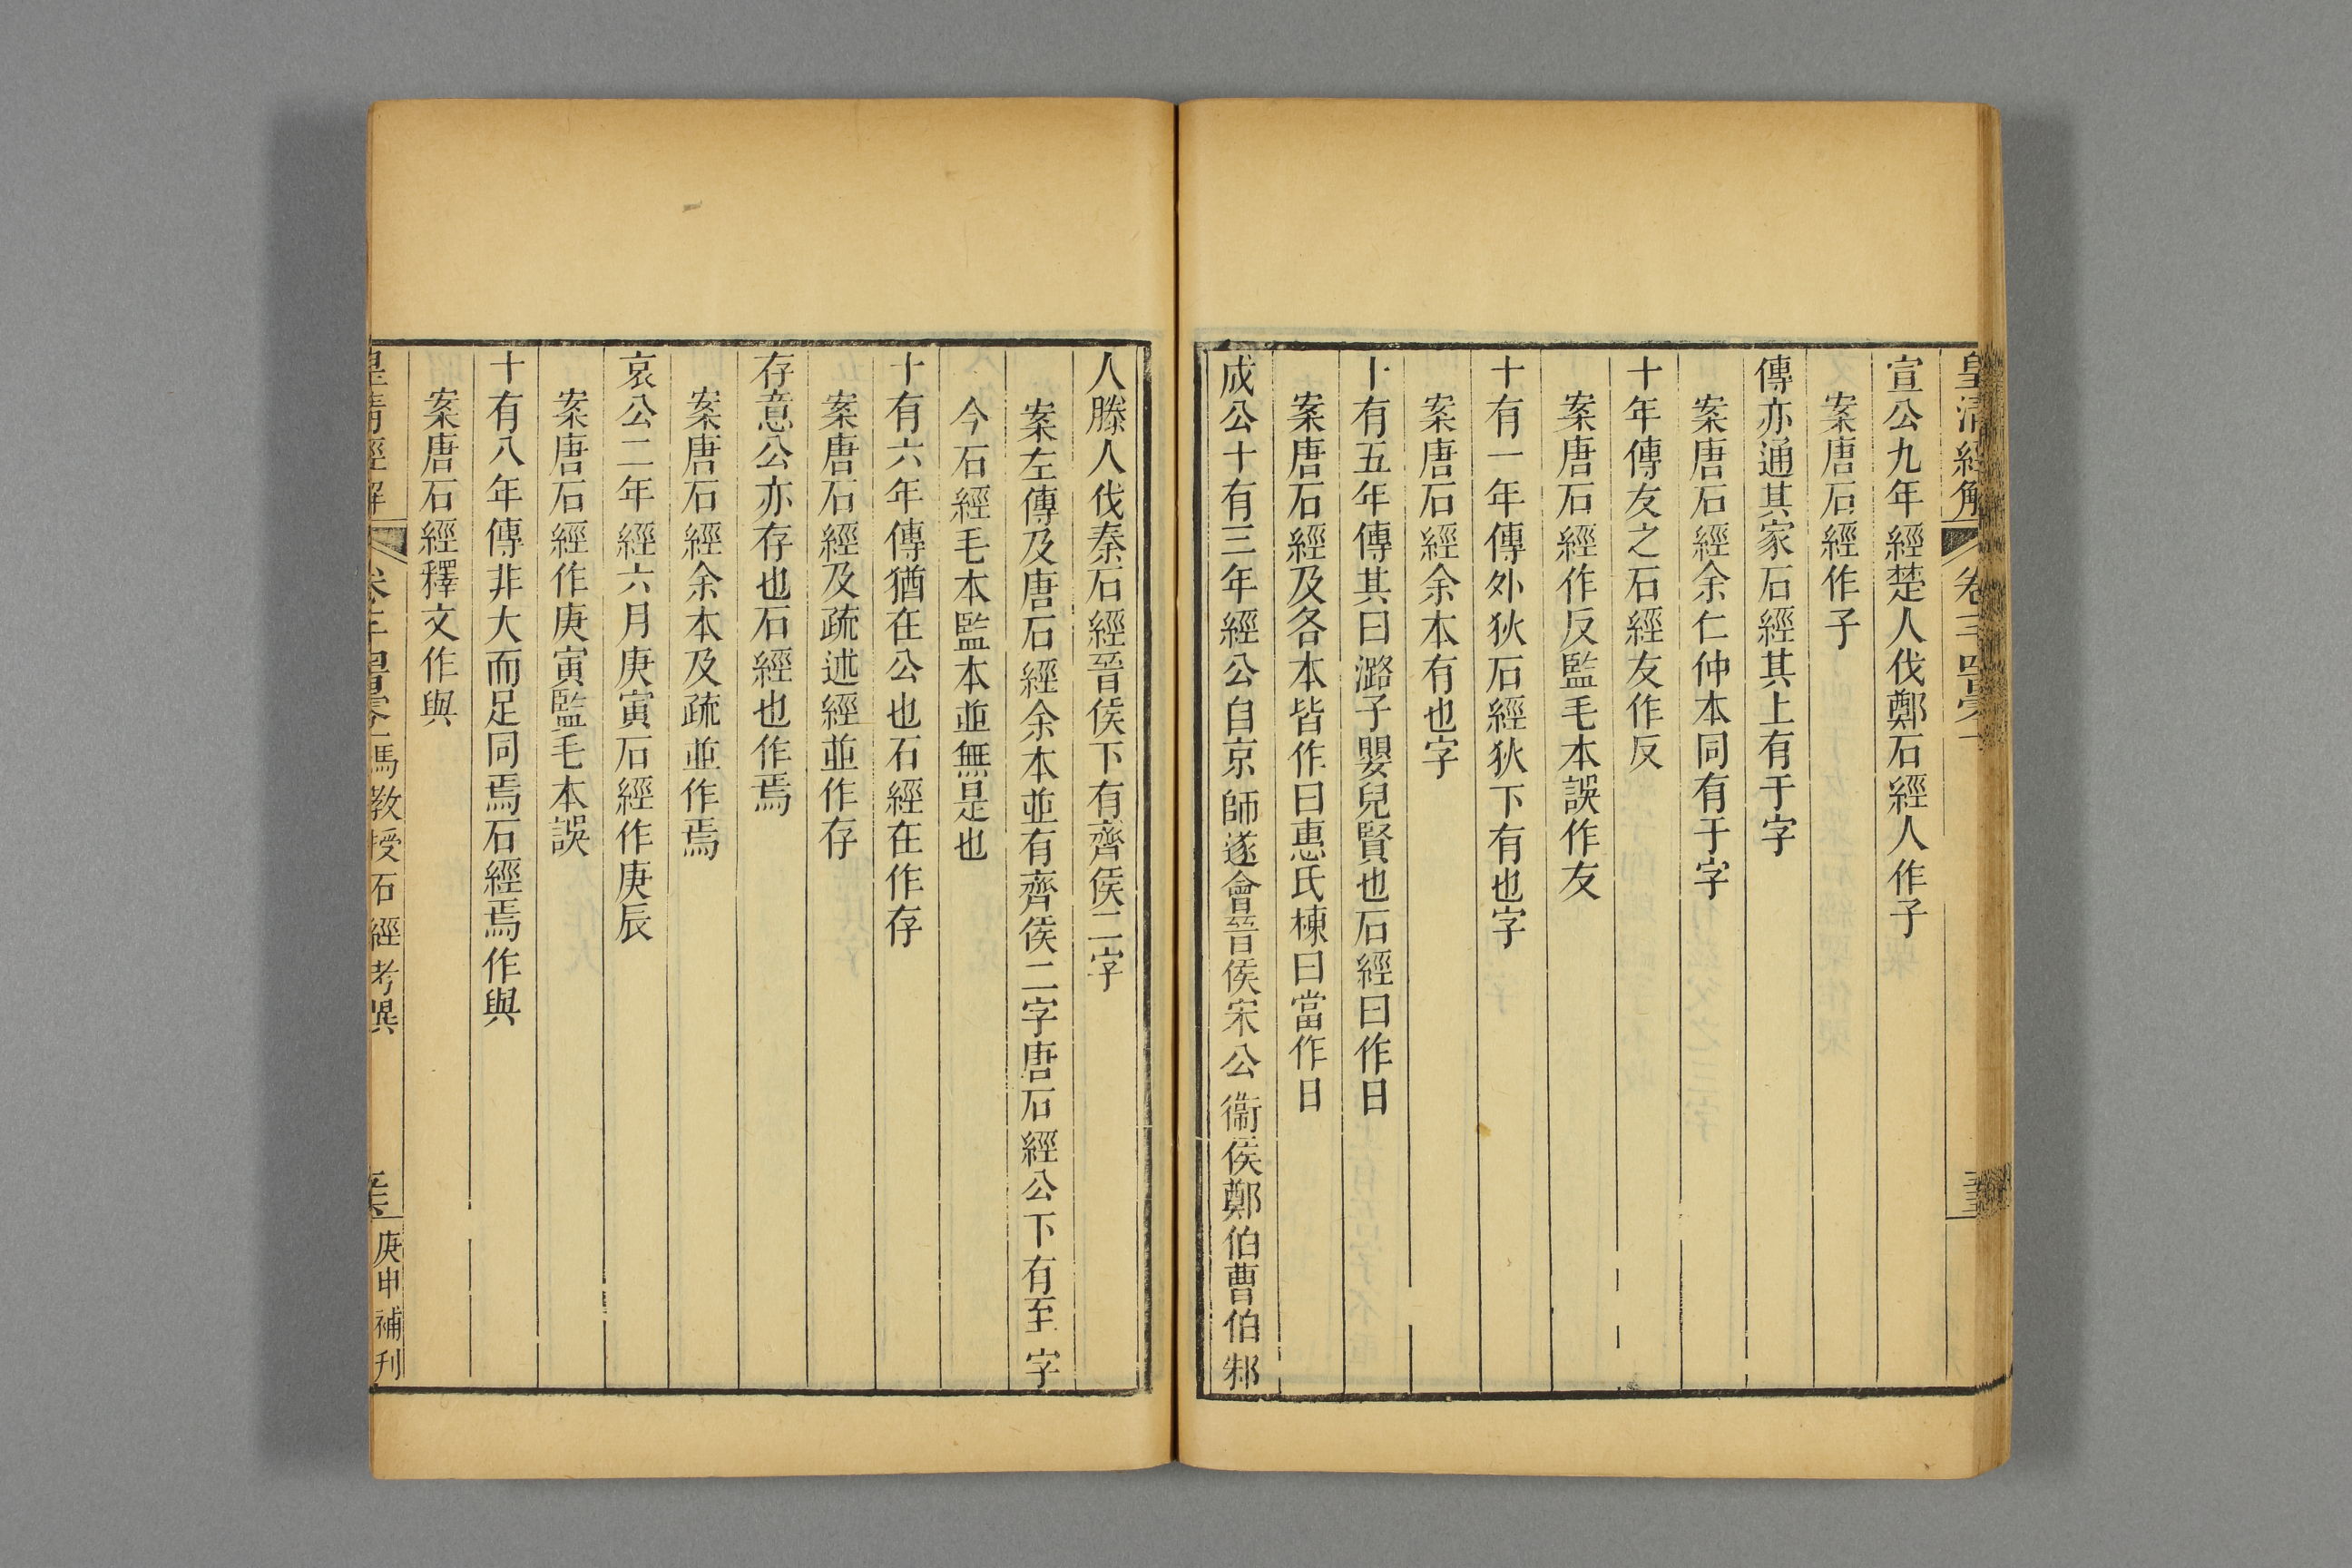 皇清經解 卷
宣公九年經楚人伐鄭石經人作子
案唐石經作子
傳亦通其家石經其上有于字
案唐石經余仁仲本同有于字
十年傳友之石經友作反
案唐石經作反監毛本誤作友
十有一年傳外狄石經狄下有也字
案唐石經余本有也字
十有五年傳其曰潞子嬰兒賢也石經曰作日
案唐石經及各本皆作曰惠氏棟曰當作日
成公十有三年經公自京師遂會晉侯宋公衞侯鄭伯曹伯邾
人滕人伐秦石經晉侯下有齊侯二字
案左傳及唐石經余本並有齊侯二字唐石經公下有至字
今石經毛本監本並無是也
十有六年傳猶在公也石經在作存
案唐石經及疏述經並作存
存意公亦存也石經也作焉
案唐石經余本及疏並作焉
哀公二年經六月庚寅石經作庚辰
案唐石經作庚寅監毛本誤
十有八年傳非大而足同焉石經焉作與
案唐石經釋文作與
皇清經解 卷 馮教授石經考異 庚申補刊